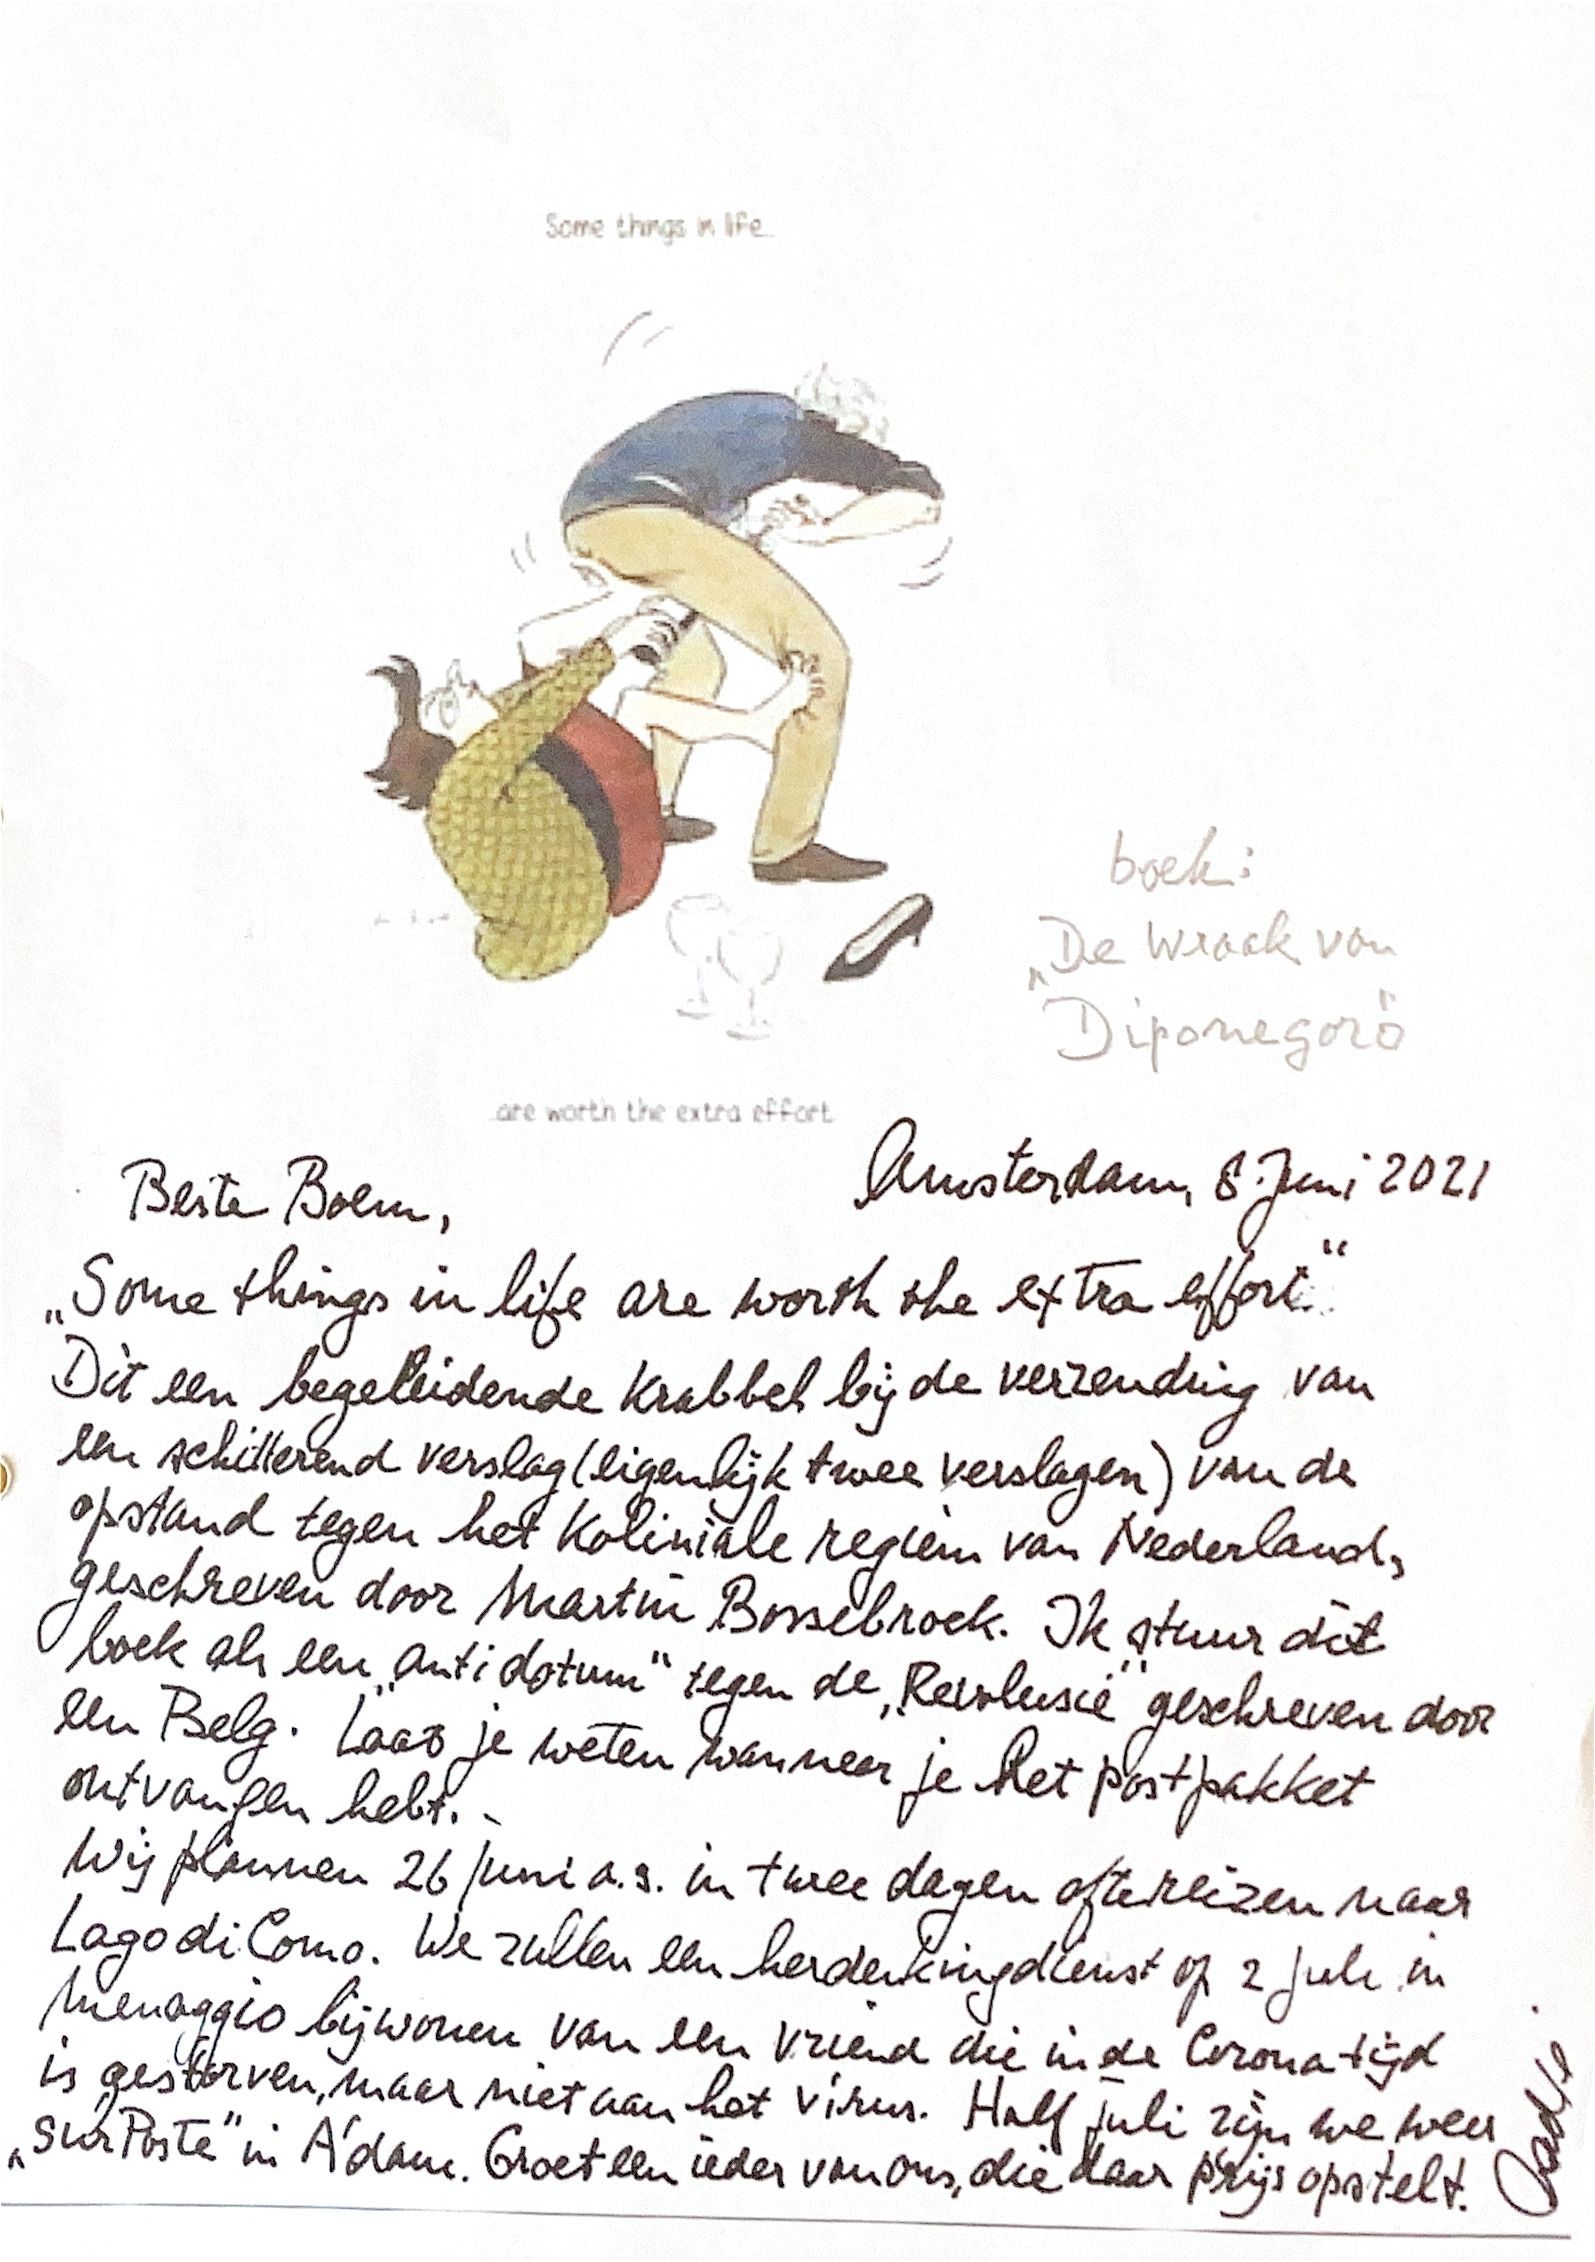 Some things in life...
boek:
„De Wraak van
Diponegoro"
...are worth the extra effort
Amsterdam, 8 Juni 2021
Beste Boem,
„Some things in life are worth the extra effort."
Dit een begeleidende krabbel bij de verzending van
een schitterend verslag (eigenlijk twee verslagen) van de
opstand tegen het koliniale regiem van Nederland,
geschreven door Martin Bossebroek. Ik stuur dit
boek als een „antidotum" tegen de „Revolusie" geschreven door
een Belg. Laat je weten wanneer je het postpakket
ontvangen hebt.
Wij plannen 26 juni a.s. in twee dagen af te reizen naar
Lago di Como. We zullen een herdenkingdienst op 2 juli in
Menaggio bijwonen van een vriend die in de Corona tijd
is gestorven, maar niet aan het virus. Half juli zijn we weer
„sur Poste" in A'dam. Groet een ieder van ons, die daar prijs op stelt.